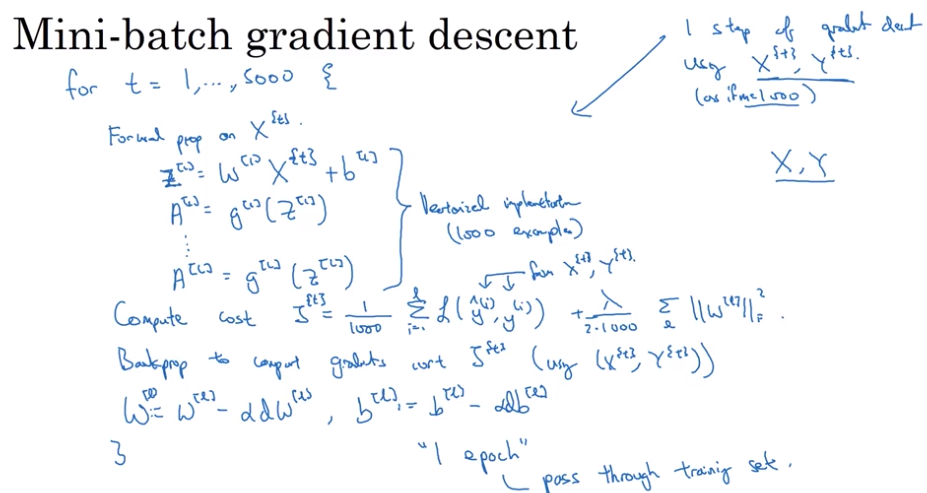 Mini-batch gradient descent
for t = 1, ..., 5000 {
1 step of gradient descent
using X^{t}, Y^{t}.
(as if m=1000)
Forward prop on X^{t}.
X, Y
Z^[1] = W^[1] X^{t} + b^[1]
A^[1] = g^[1](Z^[1])
⋮
A^[L] = g^[L](Z^[L])
Vectorized implementation
(1000 examples)
from X^{t}, Y^{t}.
Compute cost J^{t} = 1/1000 Σ_{i=1}^{l} L(ŷ^(i), y^(i)) + λ/(2·1000) Σ_l ||W^[l]||_F^2.
Backprop to compute gradients wrt J^{t} (using (X^{t}, Y^{t}))
W^[l] := W^[l] - αdW^[l], b^[l] := b^[l] - αdb^[l]
}
"1 epoch"
pass through training set.